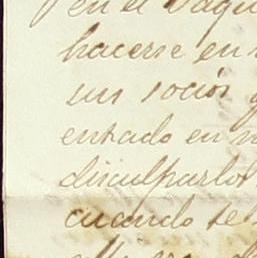 en el Vaqu
hacerse en
sus socios
entrado en
disculparlos
cuando se